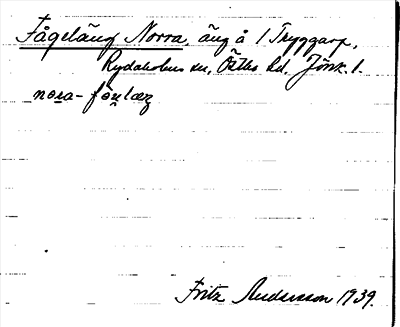 Fågeläng Norra, äng å 1 Tryggarp,
Rydaholms sn, Östbo hd. Jönk. l.
nora- fön læŋ
Fritz Andersson 1939.